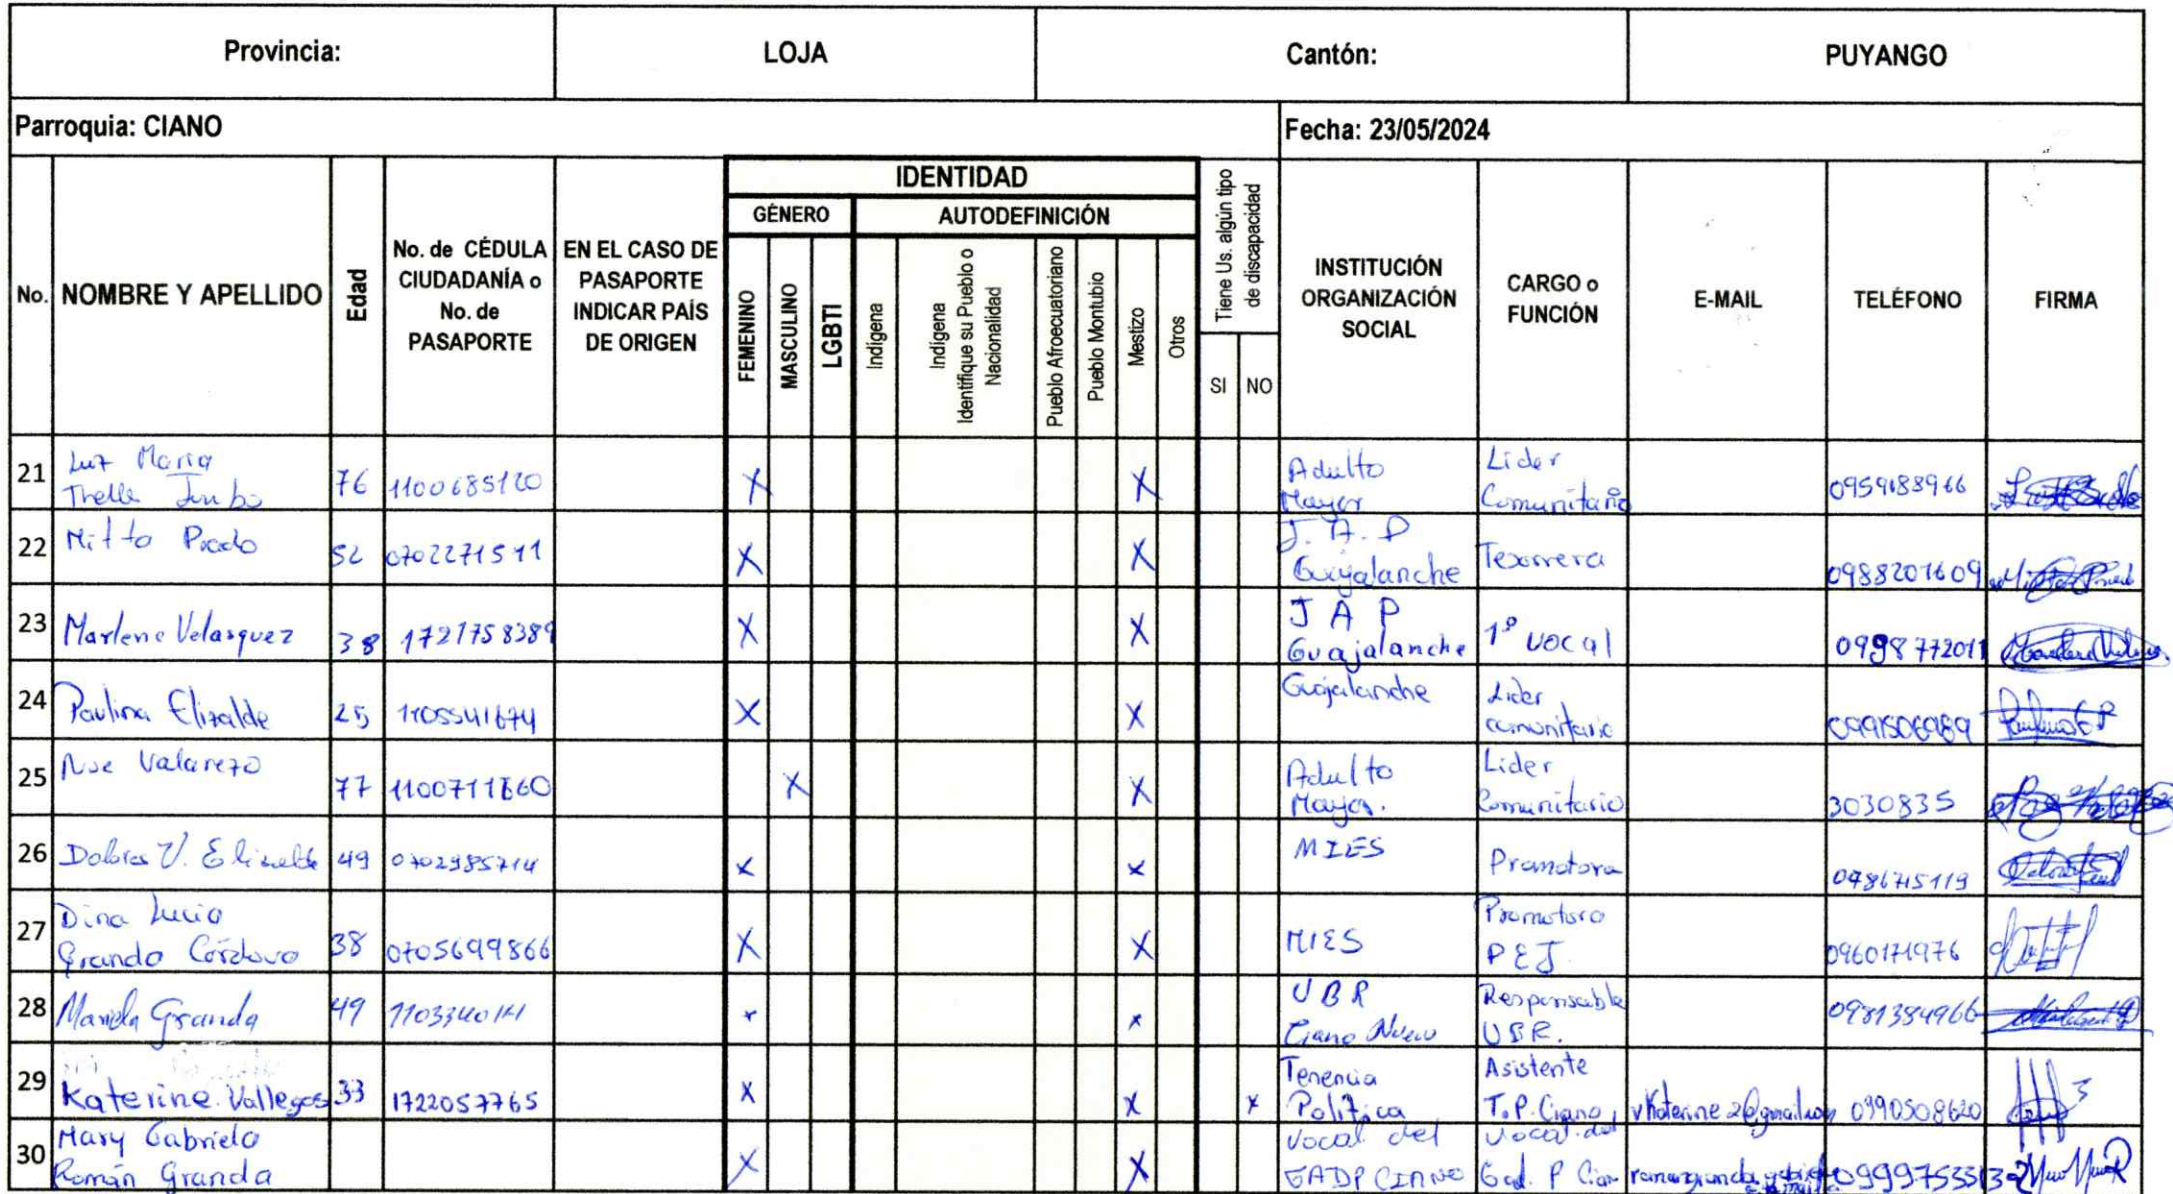 Provincia: LOJA Cantón: PUYANGO
Parroquia: CIANO Fecha: 23/05/2024
No. NOMBRE Y APELLIDO Edad No. de CÉDULA CIUDADANÍA o No. de PASAPORTE EN EL CASO DE PASAPORTE INDICAR PAÍS DE ORIGEN
IDENTIDAD
GÉNERO AUTODEFINICIÓN
FEMENINO MASCULINO LGBTI Indígena Indígena Identifique su Pueblo o Nacionalidad Pueblo Afroecuatoriano Pueblo Montubio Mestizo Otros
Tiene Us. algún tipo de discapacidad
SI NO
INSTITUCIÓN ORGANIZACIÓN SOCIAL CARGO o FUNCIÓN E-MAIL TELÉFONO FIRMA
21 Luz Maria 76 1100685120 X X Adulto Mayor Lider Comunitario 0959188966
22 Prado 52 0702271511 X X J.A.P Guajalanche Tesorrera 0988201609
23 Marlene Velasquez 38 1721758389 X X J A P Guajalanche 1º vocal 0998772011
24 Paulina Elizalde 25 1105541674 X X Guajalanche Lider comunitario 0991506989
25 Valarezo 77 X X Adulto Mayor. Lider Comunitario 3030835
26 Dolores V. Elizalde 49 0702985714 X X MIES Promotora
27 Dina Lucia Granda Córdova 38 0705699866 X X MIES Promotora PEJ 0960171976
28 Mariela Granda 49 x x UBR Ciano Nuevo Responsable UBR. 0981384966
29 Katerine Vallegos 33 1722057765 X X x Tenencia Politica Asistente T.P. Ciano 0990508620
30 Mary Gabriela Román Granda X X Vocal del GADP CIANO Vocal del Gad. P Cian